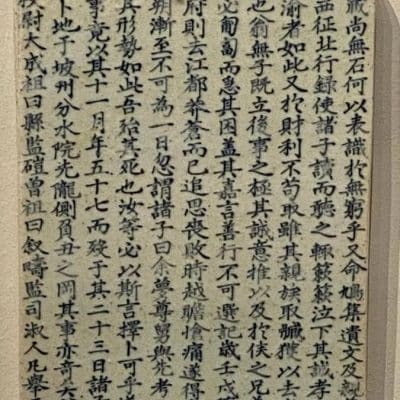 藏尚無石何以表識於無窮乎又命鳩集遺文及親
益征北行錄使諸子讀而聽之輒簌簌泣下其誠孝
渝者如此又於財利不苟取雖其親族取臟獲以去
也翁無子旣立後事之極其誠意推以及於俠之兄
必匍匐而恩其困蓋其嘉言善行不可選記歲壬戌
府則去江都莽蒼而已追思喪敗時越瞻愴痛遂得
朔漸至不可為一日忽謂諸子曰余夢尊舅與先考
其形勢如此吾殆其死也汝等必以斯言擇卜可乎
事竟以其十一月年五十七而歿于其二十三日諸
卜地于坡州分水院先隴側負丑之岡其事亦奇矣
校尉大成祖曰縣監磑曾祖曰敘疇監司淑人凡舉